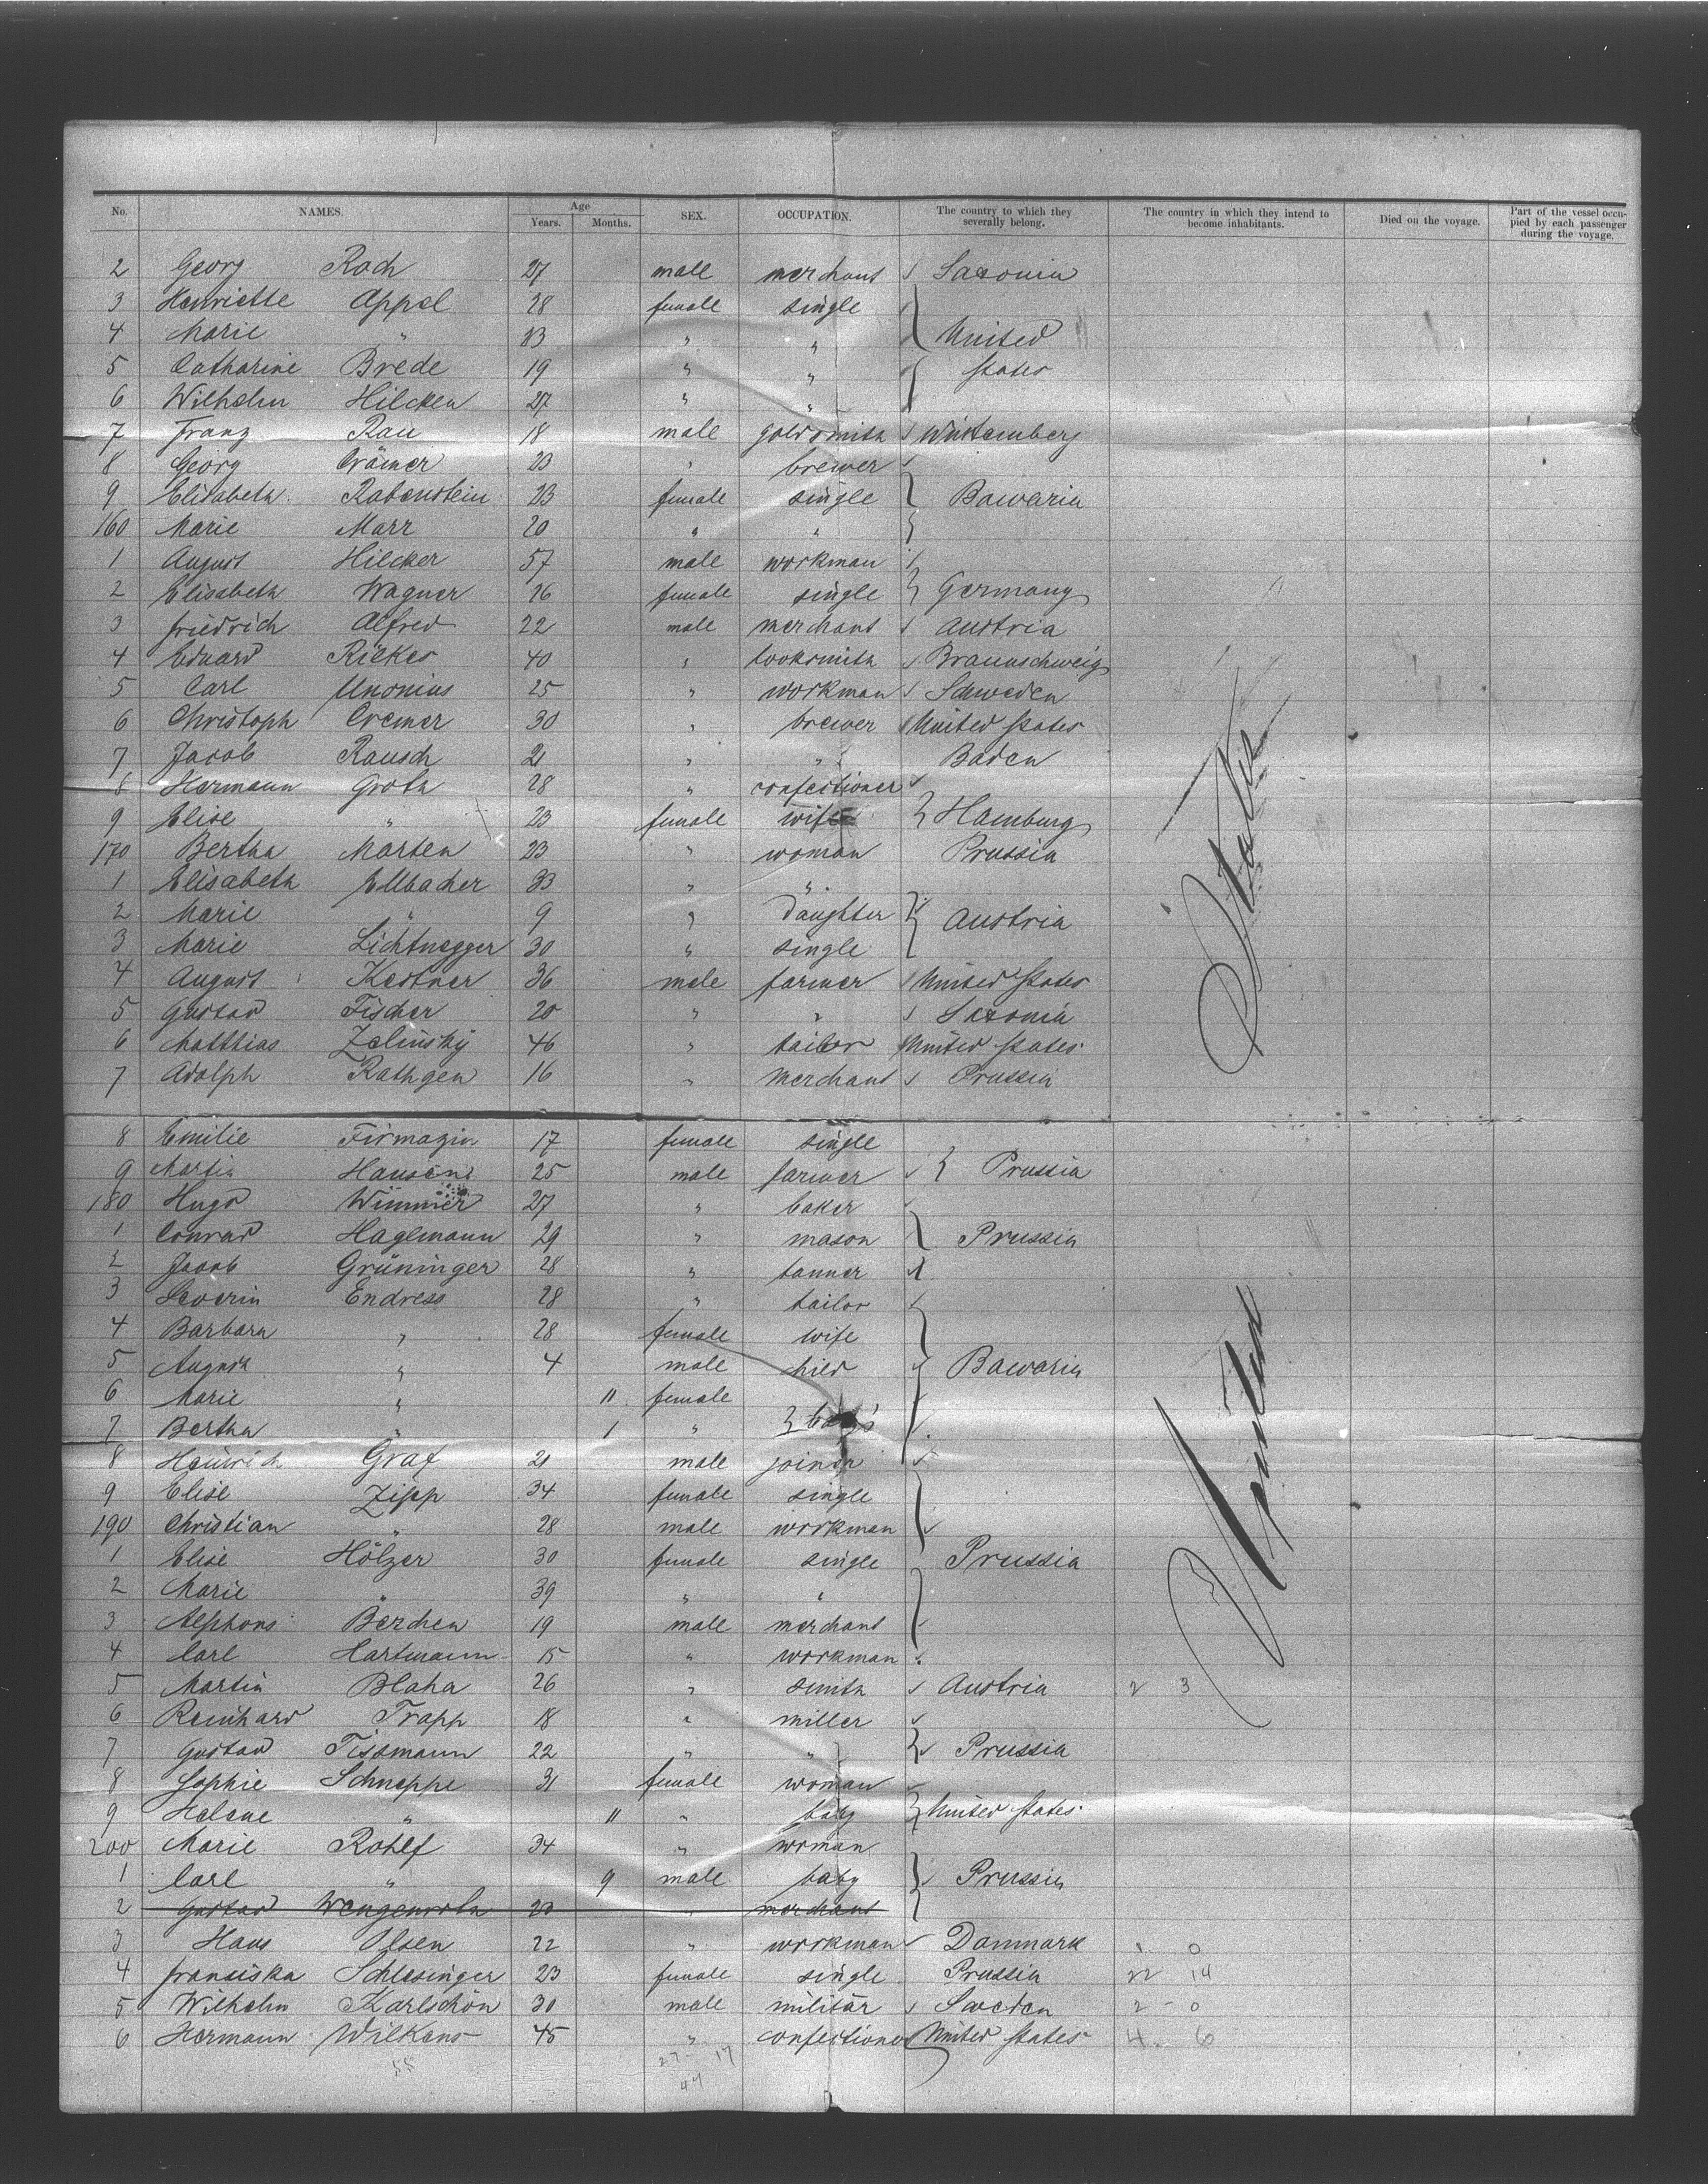 No. NAMES. Age Years. Months. SEX. OCCUPATION. The country to which they severally belong. The country in which they intend to become inhabitants. Died on the voyage. Part of the vessel occupied by each passenger during the voyage.
2 Georg Roch 27 male merchant Saxonia
3 Henriette Appel 28 female single
4 Marie " 23 " " United
5 Catharine Brede 19 " " States
6 Wilhelm Hilcken 27 " "
7 Franz Rau 18 male goldsmith Würtemberg
8 Georg Crämer 23 " brewer
9 Elisabeth Rabenstein 23 female single Bawaria
160 Marie Marr 20 " "
1 August Hilcker 57 male workman
2 Elisabeth Wagner 26 female single Germany
3 Friedrich Alfred 22 male merchant Austria
4 Eduard Riekes 40 " looksmith Braunschweig
5 Carl Unonius 25 " workman Schweden
6 Christoph Cremer 30 " brewer United States
7 Jacob Rausch 21 " " Baden
8 Hermann Groth 28 " confectioner
9 Elise " 23 female wife Hamburg
170 Bertha Marten 23 " woman Prussia
1 Elisabeth Ellbacher 33 " "
2 Marie " 9 " daughter Austria
3 Marie Lichtnegger 30 " single
4 August Kestner 36 male farmer United States
5 Gustav Fischer 20 " " Saxonia
6 Matthias Zelinsky 46 " tailor United States
7 Adolph Rathgen 16 " merchant Prussia
States
8 Emilie Firmazin 17 female single
9 Martin Hausen 25 male farmer Prussia
180 Hugo Wimmer 27 " baker
1 Conrad Haglmann 29 " mason Prussia
2 Jacob Grüninger 28 " tanner
3 Severin Endress 28 " tailor
4 Barbara " 28 female wife
5 August " 4 male child Bawaria
6 Marie " 11 female
7 Bertha " 1 " baby's
8 Heinrich Graf 21 male joiner
9 Elise Zipp 34 female single
190 Christian " 28 male workman
1 Elise Hölzer 30 female single Prussia
2 Marie " 39 " "
3 Alphons Berchen 19 male merchant
4 Carl Hartmann 15 " workman
5 Martin Blaha 26 " smith Austria 2 3
6 Reinhard Trapp 18 " miller
7 Gustav Tissmann 22 " " Prussia
8 Sophie Schneppe 31 female woman
9 Helene " 11 " baby United States
200 Marie Rohlf 34 " woman
1 Carl " 9 male baby Prussia
2 Gustav Wengenroth 20 " merchant
3 Hans Olsen 22 " workman Danmark 1 0
4 Franziska Schlesinger 23 female single Prussia 22 14
5 Wilhelm Karlschön 30 male militär Sweden 2 0
6 Hermann Wilkens 45 " confectioner United States 4 6
United
55 27 17
44